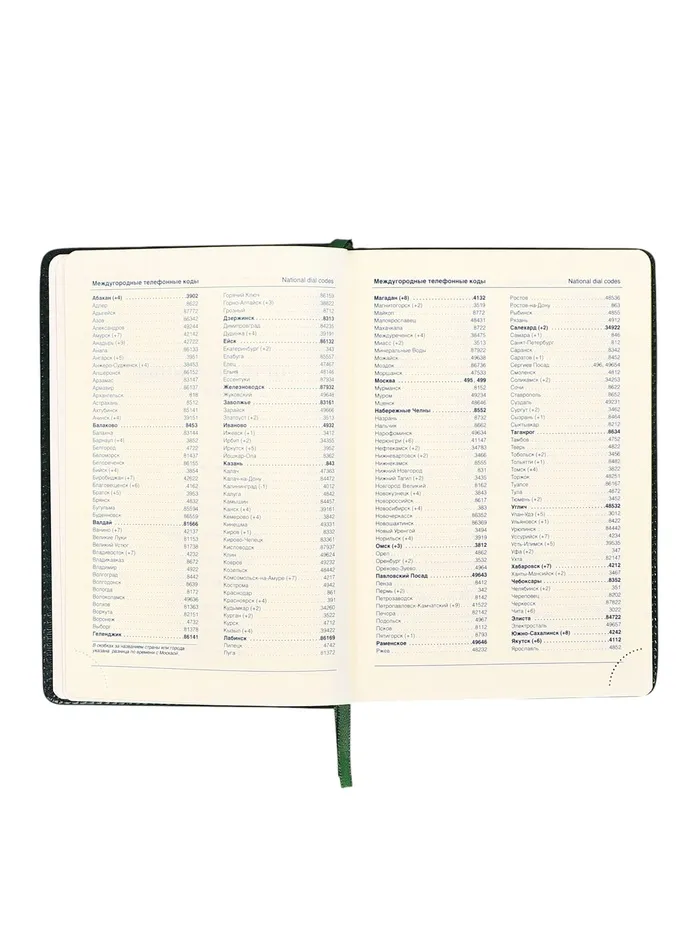 Междугородные телефонные коды National dial codes
Абакан (+4) 3902
Адлер 8622
Адыгейск 87772
Азов 86342
Александров 49244
Амурск (+7) 42142
Анадырь (+9) 42722
Анапа 86133
Ангарск (+5) 3951
Анжеро-Судженск (+4) 38453
Апшеронск 86152
Арзамас 83147
Армавир 86137
Архангельск 818
Астрахань 8512
Ахтубинск 85141
Ачинск (+4) 39151
Балаково 8453
Балахна 83144
Барнаул (+4) 3852
Белгород 4722
Беломорск 81437
Белореченск 86155
Бийск (+4) 3854
Биробиджан (+7) 42622
Благовещенск (+6) 4162
Братск (+5) 3953
Брянск 4832
Бугульма 85594
Буденновск 86559
Валдай 81666
Ванино (+7) 42137
Великие Луки 81153
Великий Устюг 81738
Владивосток (+7) 4232
Владикавказ 8672
Владимир 4922
Волгоград 8442
Волгодонск 8639
Вологда 8172
Волоколамск 49636
Волхов 81363
Воркута 82151
Воронеж 4732
Выборг 81378
Геленджик 86141
В скобках за названием страны или города
указана разница по времени с Москвой.
Горячий Ключ 86159
Горно-Алтайск (+3) 38822
Грозный 8712
Дзержинск 8313
Димитровград 84235
Дудинка (+4) 39191
Ейск 86132
Екатеринбург (+2) 343
Елабуга 85557
Елец 47467
Ельня 48146
Ессентуки 87934
Железноводск 87932
Жуковский 49648
Заволжье 83161
Зарайск 49666
Златоуст (+2) 3513
Иваново 4932
Ижевск (+1) 3412
Ирбит (+2) 34355
Иркутск (+5) 3952
Йошкар-Ола 8362
Казань 843
Калач 47363
Калач-на-Дону 84472
Калининград (-1) 4012
Калуга 4842
Камышин 84457
Канск (+4) 39161
Кемерово (+4) 3842
Кинешма 49331
Киров (+1) 8332
Кирово-Чепецк 83361
Кисловодск 87937
Клин 49624
Ковров 49232
Козельск 48442
Кострома 4942
Комсомольск-на-Амуре (+7) 4217
Краснодар 861
Красноярск (+4) 391
Кудымкар (+2) 34260
Курган (+2) 3522
Курск 4712
Кызыл (+4) 39422
Лабинск 86169
Липецк 4742
Луга 81372
Междугородные телефонные коды National dial codes
Магадан (+8) 4132
Магнитогорск (+2) 3519
Майкоп 8772
Малоярославец 48431
Махачкала 8722
Междуреченск (+4) 38475
Миасс (+2) 3513
Минеральные Воды 87922
Можайск 49638
Моздок 86736
Моршанск 47533
Москва 495, 499
Мурманск 8152
Муром 49234
Мценск 48646
Набережные Челны 8552
Назрань 8732
Нальчик 8662
Нарофоминск 49634
Нерюнгри (+6) 41147
Нефтекамск (+2) 34783
Нижневартовск (+2) 3466
Нижнекамск 8555
Нижний Новгород 831
Нижний Тагил (+2) 3435
Новгород Великий 8162
Новокузнецк (+4) 3843
Новороссийск 8617
Новосибирск (+4) 383
Новочеркасск 86352
Новошахтинск 86369
Новый Уренгой 3494
Норильск (+4) 3919
Омск (+3) 3812
Орел 4862
Оренбург (+2) 3532
Орехово-Зуево 4964
Павловский Посад 49643
Пенза 8412
Пермь (+2) 342
Петропавловск-Камчатский (+9) 41522
Петрозаводск 8142
Печора 82142
Подольск 4967
Псков 8112
Пятигорск (+1) 8793
Раменское 49646
Ржев 48232
Ростов 48536
Ростов-на-Дону 863
Рыбинск 4855
Рязань 4912
Салехард (+2) 34922
Самара (+1) 846
Санкт-Петербург 812
Саранск 8342
Саратов (+1) 8452
Сергиев Посад 496, 49654
Смоленск 4812
Соликамск (+2) 34253
Сочи 8622
Ставрополь 8652
Суздаль 49231
Сургут (+2) 3462
Сызрань (+1) 8464
Сыктывкар 8212
Таганрог 8634
Тамбов 4752
Тверь 4822
Тобольск (+2) 3456
Тольятти (+1) 8482
Томск (+4) 3822
Торжок 48251
Туапсе 86167
Тула 4872
Тюмень (+2) 3452
Углич 48532
Улан-Удэ (+5) 3012
Ульяновск (+1) 8422
Урюпинск 84442
Уссурийск (+7) 4234
Усть-Илимск (+5) 39535
Уфа (+2) 347
Ухта 82147
Хабаровск (+7) 4212
Ханты-Мансийск (+2) 3467
Чебоксары 8352
Челябинск (+2) 351
Череповец 8202
Черкесск 87822
Чита (+6) 3022
Элиста 84722
Электросталь 49657
Южно-Сахалинск (+8) 4242
Якутск (+6) 4112
Ярославль 4852